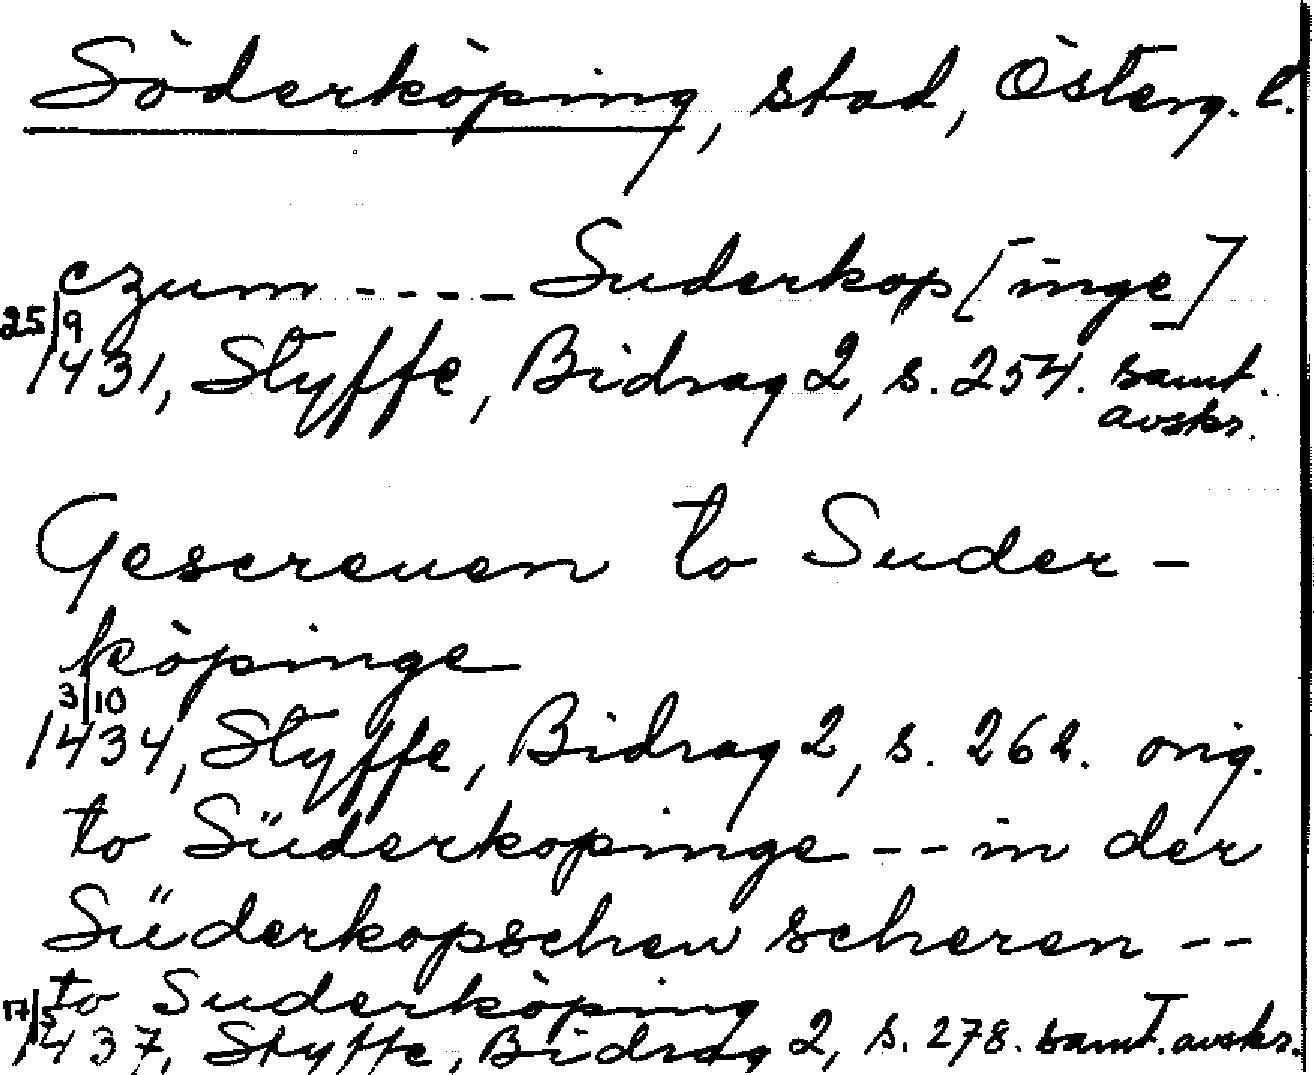 Söderköping, stad, Österg. l.
czum ---- Suderkop [inge]
25/9
1431, Styffe, Bidrag 2, s. 254. samt.
avskr.
Gescreuen to Suder-
köpinge
3/10
1434, Styffe, Bidrag 2, s. 262. orig.
to Süderkopinge -- in der
Süderkopschen scheren --
to Suderköping
17/5
1437, Styffe, Bidrag 2, s. 278. samt. avskr.